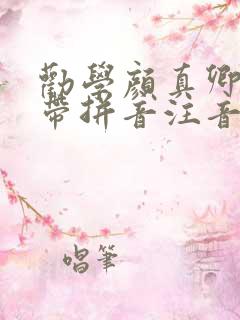 勸學顏真卿
帶拼音注音
唱筆